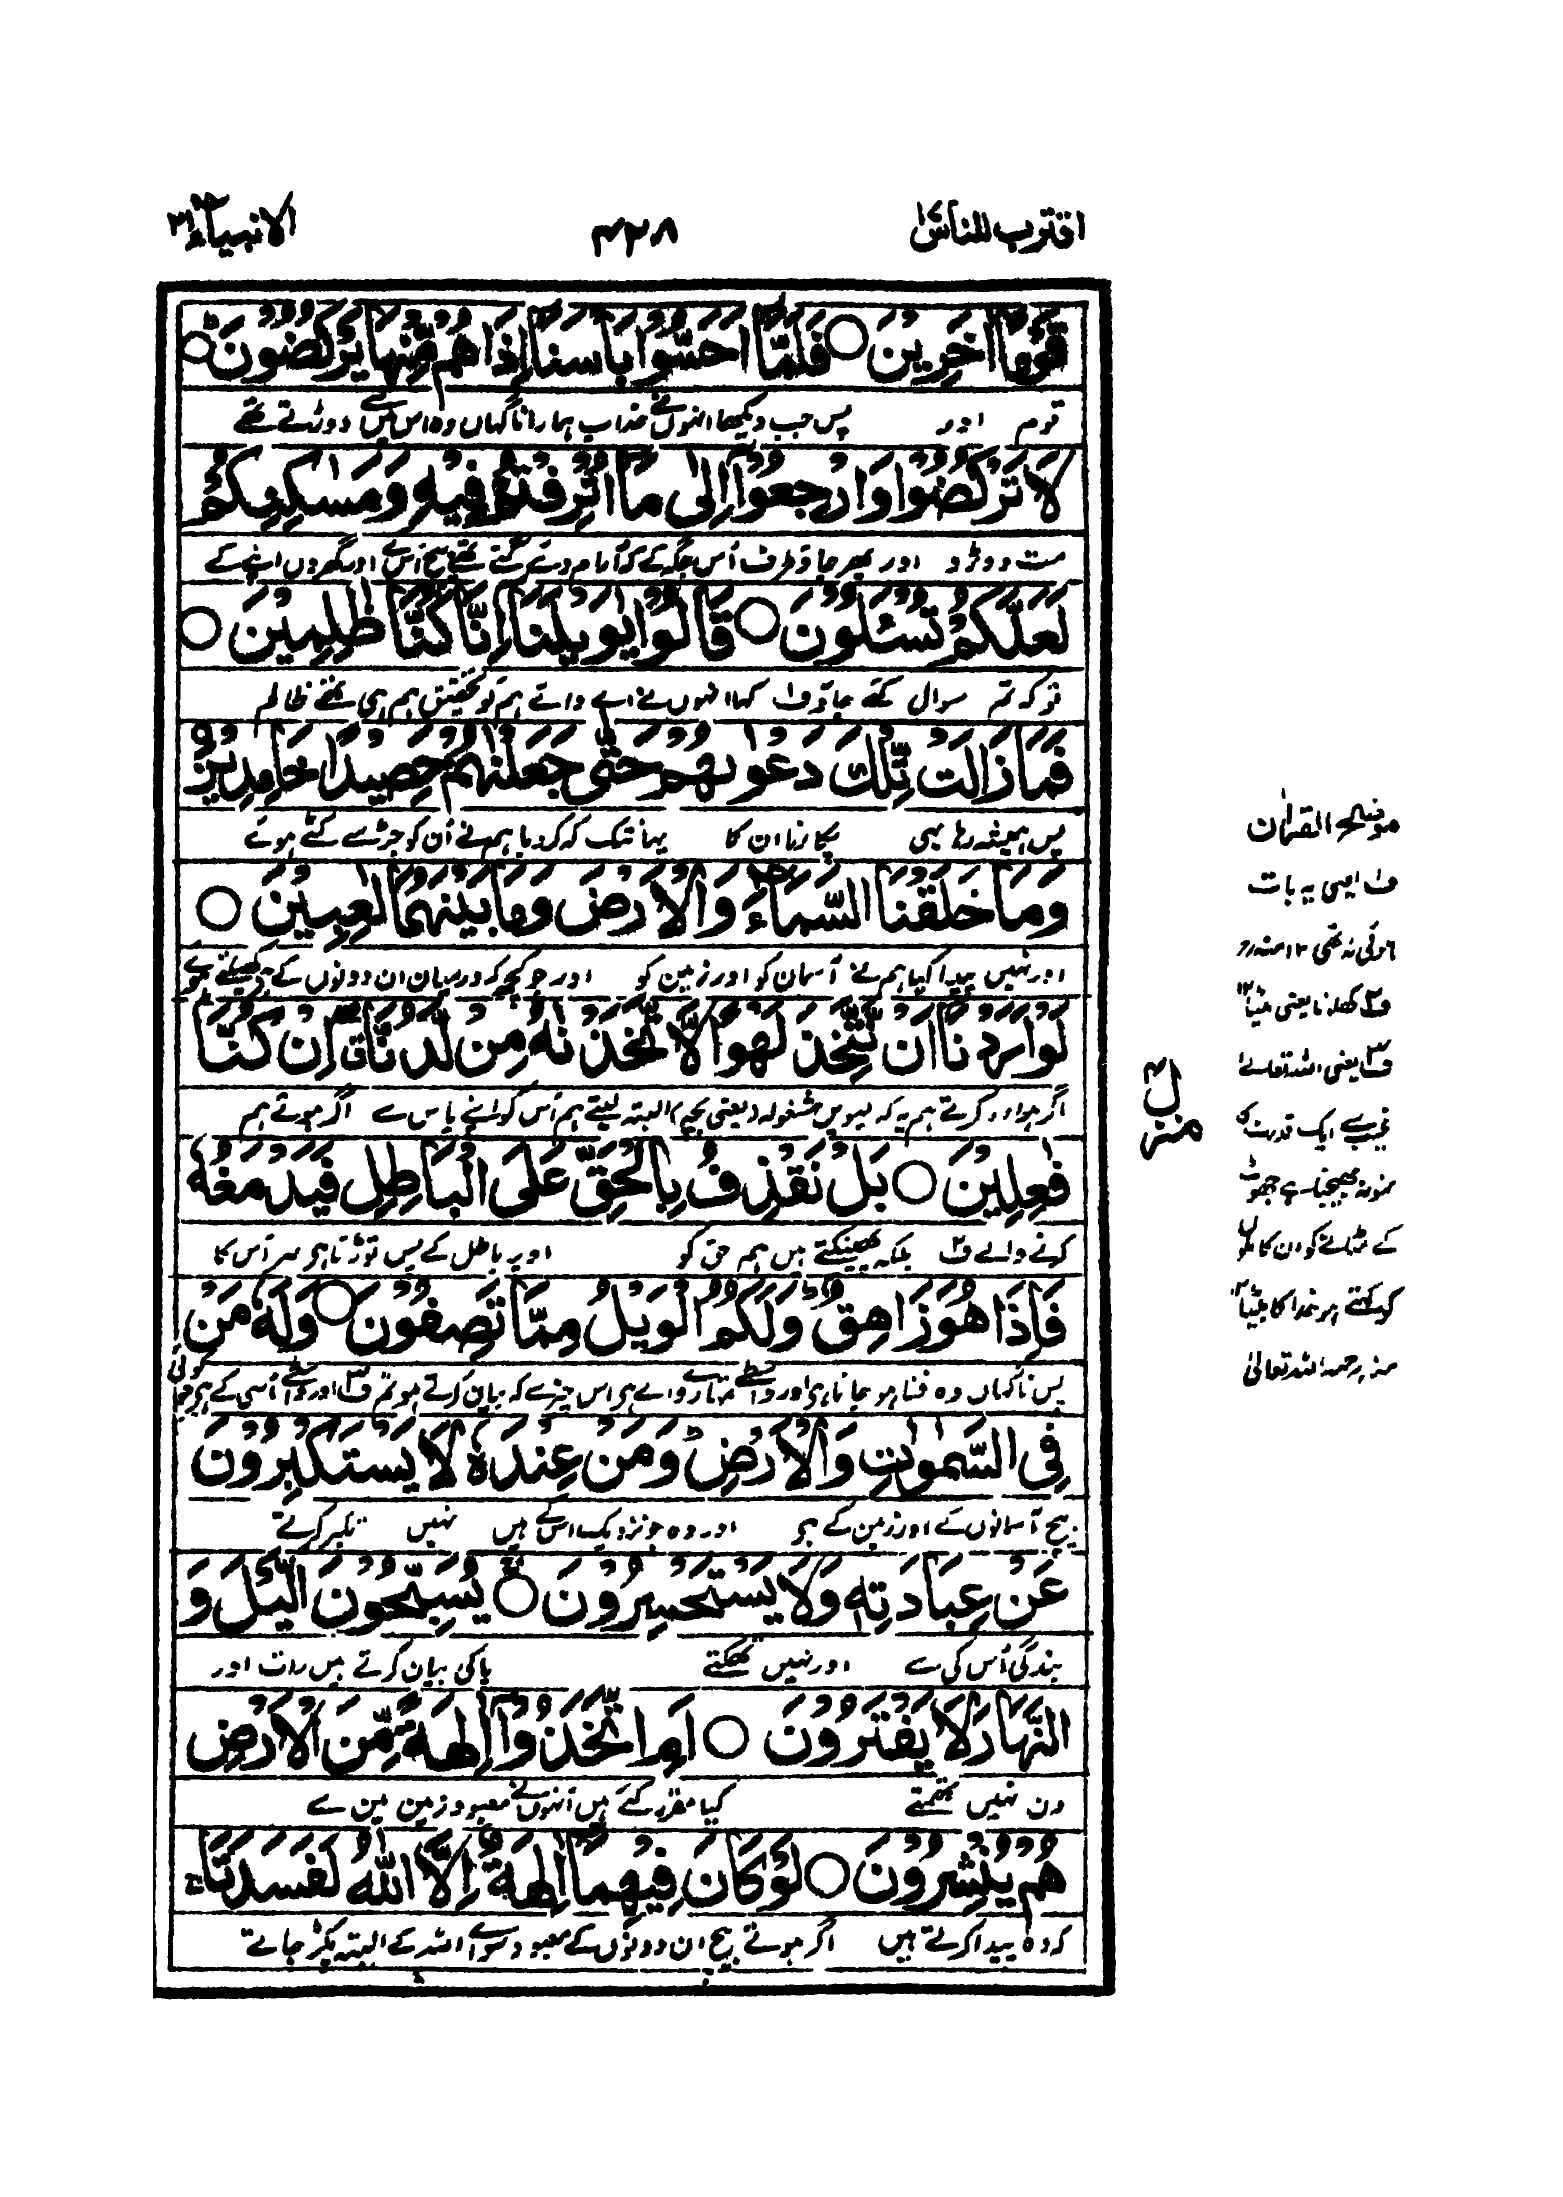 اقترب للناس ۱۷
۴۲۸
الانبیاء ۲۱
قَوْمًا اٰخَرِیْنَ ○ فَلَمَّاۤ اَحَسُّوْا بَاْسَنَاۤ اِذَا هُمْ مِّنْهَا یَرْكُضُوْنَ ؕ○
قوم اور پس جب دیکھا انہوں نے عذاب ہمارا ناگہاں وہ اس میں سے دوڑتے تھے
لَا تَرْكُضُوْا وَارْجِعُوْۤا اِلٰی مَاۤ اُتْرِفْتُمْ فِیْهِ وَمَسٰكِنِكُمْ
مت دوڑو اور پھر جاؤ طرف اُس جگہ کے کہ آرام دئے گئے تھے بیچ اُس کے اور گھروں اپنے کے
لَعَلَّكُمْ تُسْـَٔلُوْنَ ○ قَالُوْا یٰوَیْلَنَاۤ اِنَّا كُنَّا ظٰلِمِیْنَ ○
تو کہ تم سوال کئے جاؤ ف۱ کہا انہوں نے اے وائے ہم کو تحقیق ہم ہی تھے ظالم
فَمَا زَالَتْ تِّلْكَ دَعْوٰىهُمْ حَتّٰی جَعَلْنٰهُمْ حَصِیْدًا خٰمِدِیْنَ
پس ہمیشہ رہا یہی پکارنا ان کا یہانتک کہ کردیا ہم نے اُن کو جڑ سے کٹے ہوئے
وَمَا خَلَقْنَا السَّمَآءَ وَالْاَرْضَ وَمَا بَیْنَهُمَا لٰعِبِیْنَ ○
اور نہیں پیدا کیا ہم نے آسمان کو اور زمین کو اور جو کچھ کہ درمیان ان دونوں کے ہے کھیلتے ہوئے
لَوْ اَرَدْنَاۤ اَنْ نَّتَّخِذَ لَهْوًا لَّاتَّخَذْنٰهُ مِنْ لَّدُنَّاۤ ق اِنْ كُنَّا
اگر ہم ارادہ کرتے ہم یہ کہ لیویں مشغولہ یعنی بچہ البتہ لیتے ہم اُس کو اپنے پاس سے اگر ہوتے ہم
فٰعِلِیْنَ ○ بَلْ نَقْذِفُ بِالْحَقِّ عَلَی الْبَاطِلِ فَیَدْمَغُهٗ
کرنے والے ف۲ بلکہ پھینکتے ہیں ہم حق کو اوپر باطل کے پس توڑتا ہی سر اُس کا
فَاِذَا هُوَ زَاهِقٌ ؕ وَلَكُمُ الْوَیْلُ مِمَّا تَصِفُوْنَ ○ وَلَهٗ مَنْ
پس ناگہاں وہ فنا ہو جاتا ہی اور واسطے تمہارے وائے ہی اس چیز سے کہ بیان کرتے ہو تم ف۳ اور واسطے اُسی کے ہی جو کوئی
فِی السَّمٰوٰتِ وَالْاَرْضِ ؕ وَمَنْ عِنْدَهٗ لَا یَسْتَكْبِرُوْنَ
بیچ آسمانوں کے اور زمین کے ہی اور وہ جو نزدیک اس کے ہیں نہیں تکبر کرتے
عَنْ عِبَادَتِهٖ وَلَا یَسْتَحْسِرُوْنَ ۚ○ یُسَبِّحُوْنَ الَّیْلَ وَ
بندگی اُس کی سے اور نہیں تھکتے پاکی بیان کرتے ہیں رات اور
النَّهَارَ لَا یَفْتُرُوْنَ ○ اَمِ اتَّخَذُوْۤا اٰلِهَةً مِّنَ الْاَرْضِ
دن نہیں تھمتے کیا مقرر کئے ہیں اُنہوں نے معبود زمین میں سے
هُمْ یُنْشِرُوْنَ ○ لَوْ كَانَ فِیْهِمَاۤ اٰلِهَةٌ اِلَّا اللّٰهُ لَفَسَدَتَا ۚ
کہ وہ پیدا کرتے ہیں اگر ہوتے بیچ ان دونوں کے معبود سوائے اللہ کے البتہ بگڑ جاتے
موضح القرآن
ف۱ ایسی یہ بات
ہوئی نہ تھی ۱۲ منہ رح
ف۲ کھلونا یعنی بیٹا ۱۲
ف۳ یعنی اللہ تعالےٰ
غیب سے ایک قدرت کا
نمونہ بھیجتا ہے جھوٹ
کے مٹانے کو ان کا ملوں
کو کہتے ہر خدا کا بیٹا ۱۲
منہ رحمہ اللہ تعالیٰ
منزل ۴